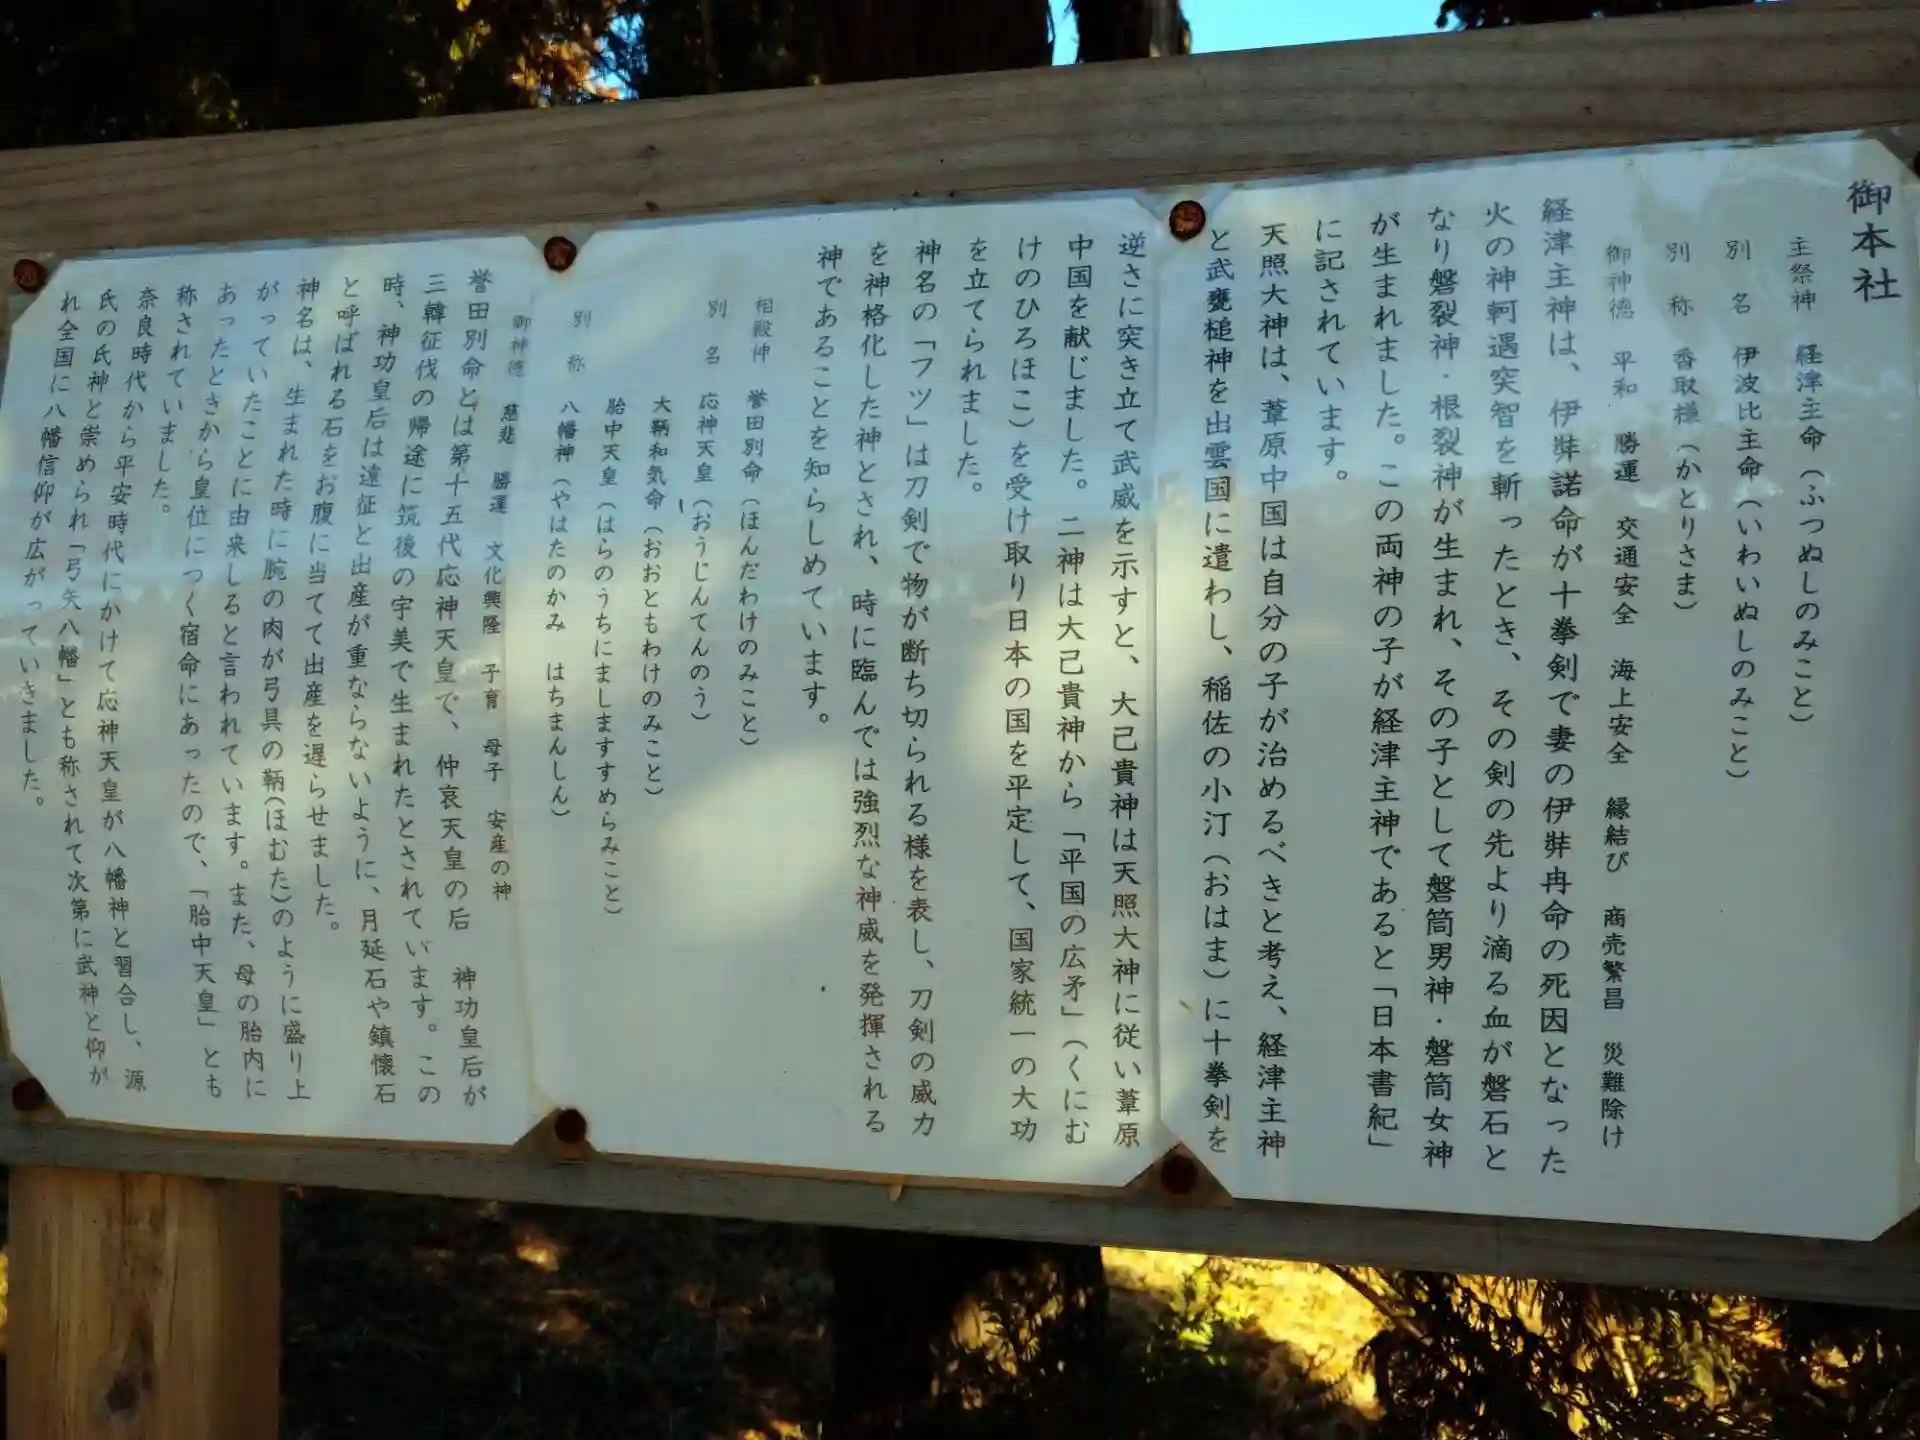 御本社
主祭神　経津主命（ふつぬしのみこと）
別　名　伊波比主命（いわいぬしのみこと）
別　称　香取様（かとりさま）
御神徳　平和　勝運　交通安全　海上安全　縁結び　商売繁昌　災難除け
経津主神は、伊弉諾命が十拳剣で妻の伊弉冉命の死因となった
火の神軻遇突智を斬ったとき、その剣の先より滴る血が磐石と
なり磐裂神・根裂神が生まれ、その子として磐筒男神・磐筒女神
が生まれました。この両神の子が経津主神であると「日本書紀」
に記されています。
天照大神は、葦原中国は自分の子が治めるべきと考え、経津主神
と武甕槌神を出雲国に遣わし、稲佐の小汀（おはま）に十拳剣を
逆さに突き立て武威を示すと、大己貴神は天照大神に従い葦原
中国を献じました。二神は大己貴神から「平国の広矛」（くにむ
けのひろほこ）を受け取り日本の国を平定して、国家統一の大功
を立てられました。
神名の「フツ」は刀剣で物が断ち切られる様を表し、刀剣の威力
を神格化した神とされ、時に臨んでは強烈な神威を発揮される
神であることを知らしめています。
相殿神　誉田別命（ほんだわけのみこと）
別　名　応神天皇（おうじんてんのう）
大鞆和気命（おおともわけのみこと）
胎中天皇（はらのうちにましますすめらみこと）
別　称　八幡神（やはたのかみ　はちまんしん）
御神徳　慈悲　勝運　文化興隆　子育　母子　安産の神
誉田別命とは第十五代応神天皇で、仲哀天皇の后　神功皇后が
三韓征伐の帰途に筑後の宇美で生まれたとされています。この
時、神功皇后は遠征と出産が重ならないように、月延石や鎮懐石
と呼ばれる石をお腹に当てて出産を遅らせました。
神名は、生まれた時に腕の肉が弓具の鞆(ほむた)のように盛り上
がっていたことに由来しると言われています。また、母の胎内に
あったときから皇位につく宿命にあったので、「胎中天皇」とも
称されていました。
奈良時代から平安時代にかけて応神天皇が八幡神と習合し、源
氏の氏神と崇められ「弓矢八幡」とも称されて次第に武神と仰が
れ全国に八幡信仰が広がっていきました。